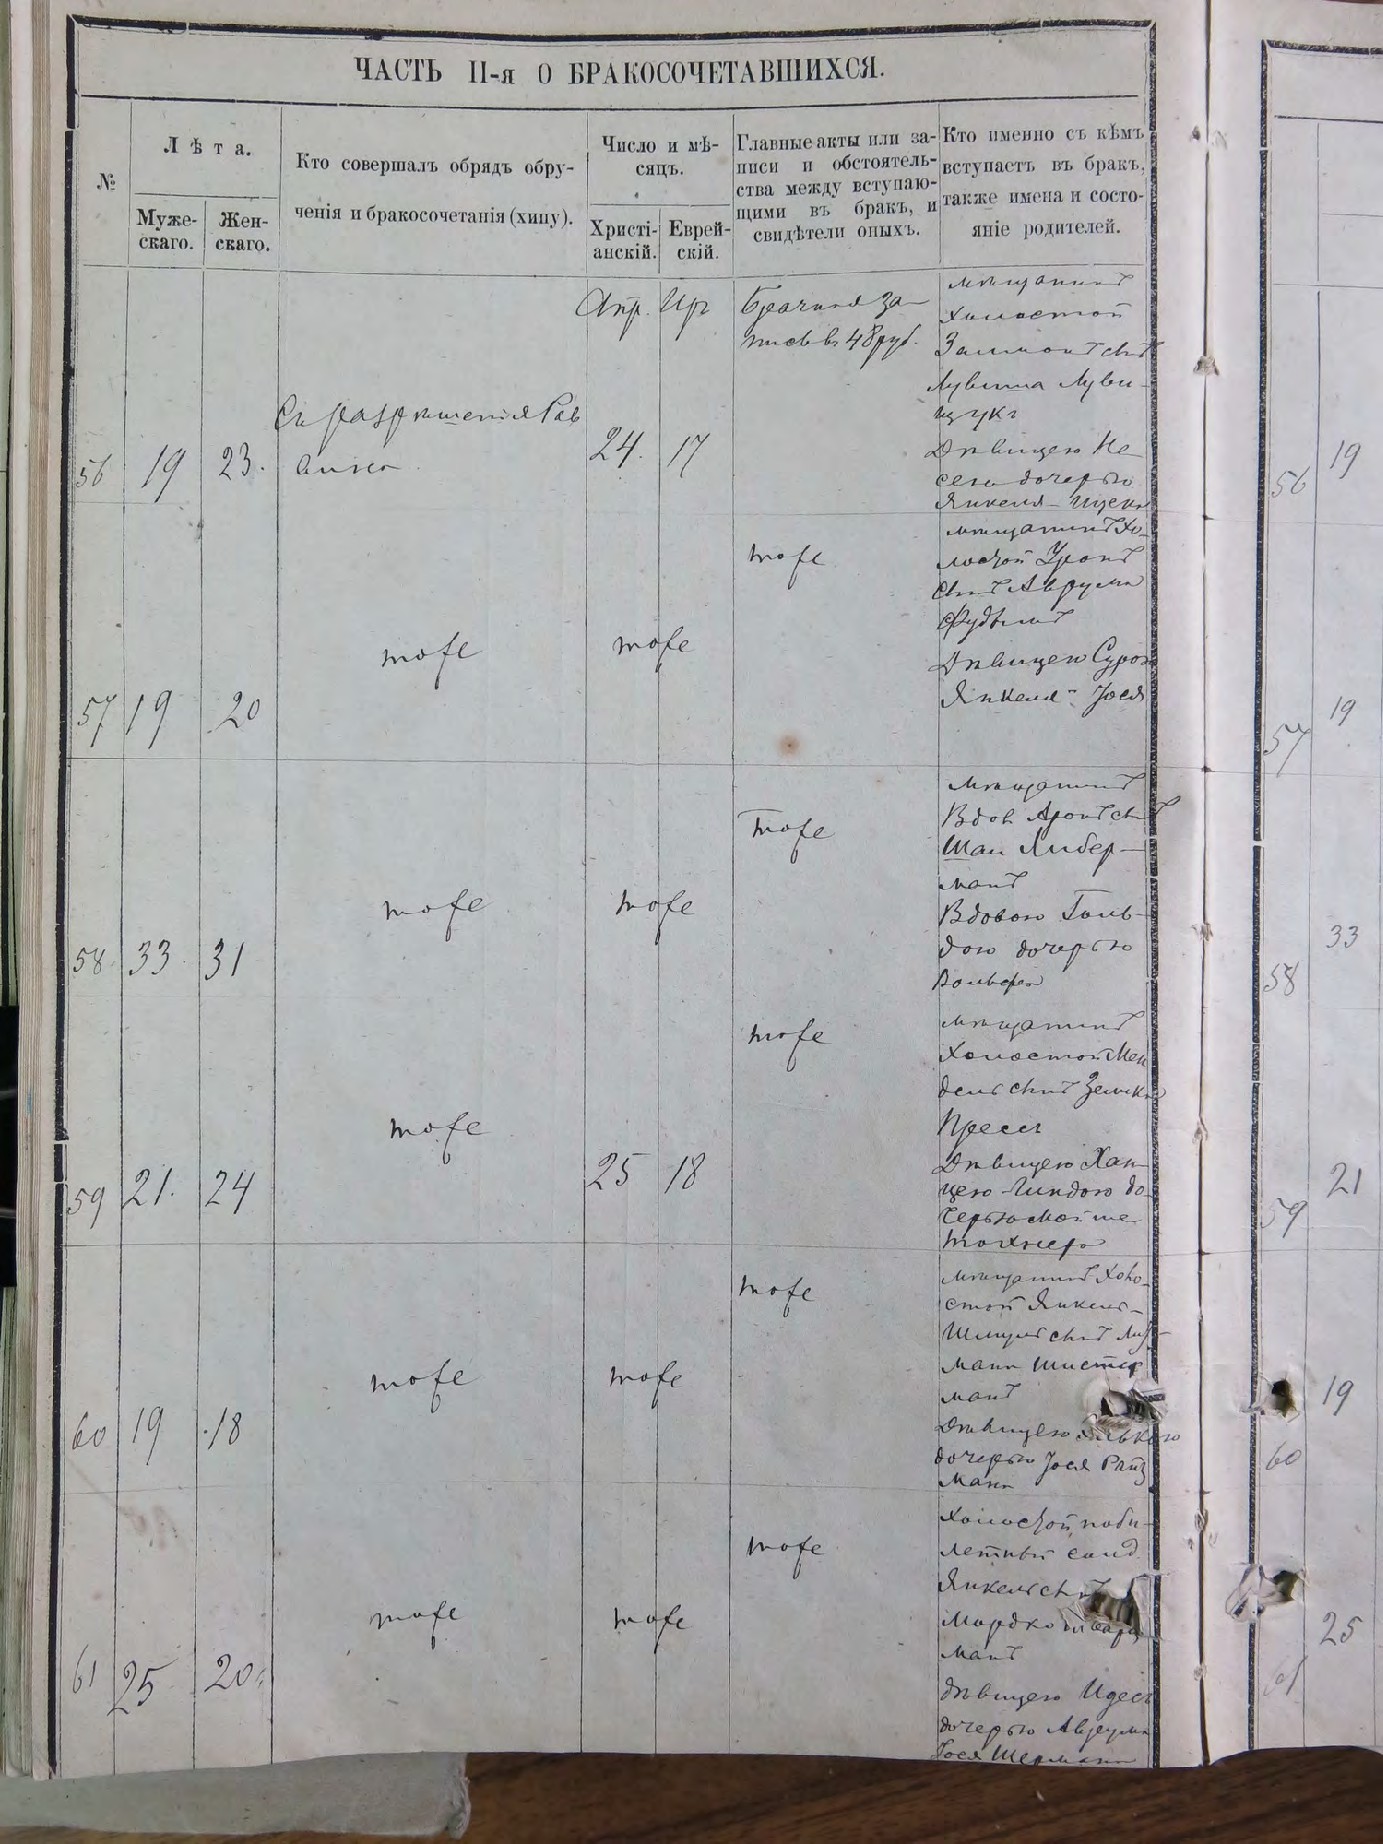 ЧАСТЬ II-я О БРАКОСОЧЕТАВШИХСЯ.
№
Лѣта.
Муже-
скаго.
Жен-
скаго.
Кто совершалъ обрядъ обру-
ченія и бракосочетанія (хипу).
Число и мѣ-
сяцъ.
Христі-
анскій.
Еврей-
скій.
Главные акты или за-
писи и обстоятель-
ства между вступаю-
щими въ бракъ, и
свидѣтели оныхъ.
Кто именно съ кѣмъ
вступаетъ въ бракъ,
также имена и состо-
яніе родителей.
56
19
23.
Съ разрѣшенія Рав
вина
Апр.
Ир
24.
17
Брачная за-
пись въ 48 руб.
мѣщанинъ
Холостой
Залмонъ сынъ
Дѣвицею Не
сею дочерью
Янкеля-Ицека
57
19
20
тоже
тоже
тоже
мѣщанинъ Хо-
лостой
сынъ Аврума
Фудымъ
Дѣвицею Сурою
Янкеля-Іося
58
33
31
тоже
тоже
Тоже
мѣщанинъ
Вдов Аронъ сынъ
Шаи Либер-
манъ
Вдовою Голь-
дою дочерью
Вольфа
59
21.
24
тоже
25
18
тоже
мѣщанинъ
Холостой Мен
дель сынъ
Прессъ
Дѣвицею Хан-
цею-Линдою до-
черью Мойше
60
19
18
тоже
тоже
тоже
мѣщанинъ Холо-
стой Янкель-
Шмуль сынъ
мана Шистер
манъ
Дѣвицею
дочерью Іося Райз
мана
61
25
20
тоже
тоже
тоже
Холостой, по би-
летный солд.
Янкель сынъ
Мордко
манъ
дѣвицею Идесъ
дочерью Аврума
Іося Шермана
56
19
57
19
58
33
59
21
60
19
61
25